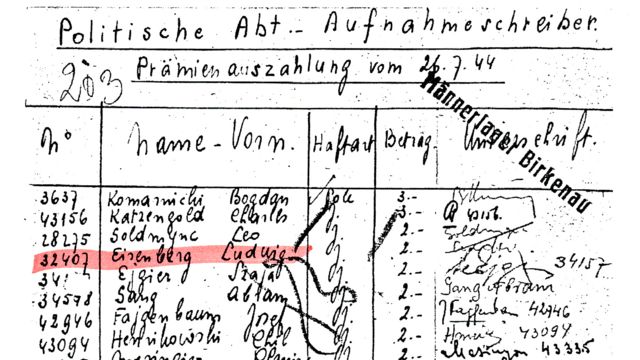 Politische Abt.- Aufnahmeschreiber.
203 Prämienauszahlung vom 26.7.44
Männerlager Birkenau
No Name - Vorn. Haftart Betrag. Unterschrift.
3637 Komarnicki Bogdan Pole 3.-
43156 Katzengold Charles J. 3.- 43156.
28275 Soldmync Leo J. 2.-
32407 Eisenberg Ludwig J. 2.-
Eggier Szaja J. 2.- 34157
34578 Sang Abram J. 2.- Sang Abram
42946 Fajgenbaum Josef J. 2.- 42946
43094 Henrikowski J. 2.- 43094
2.- 43335